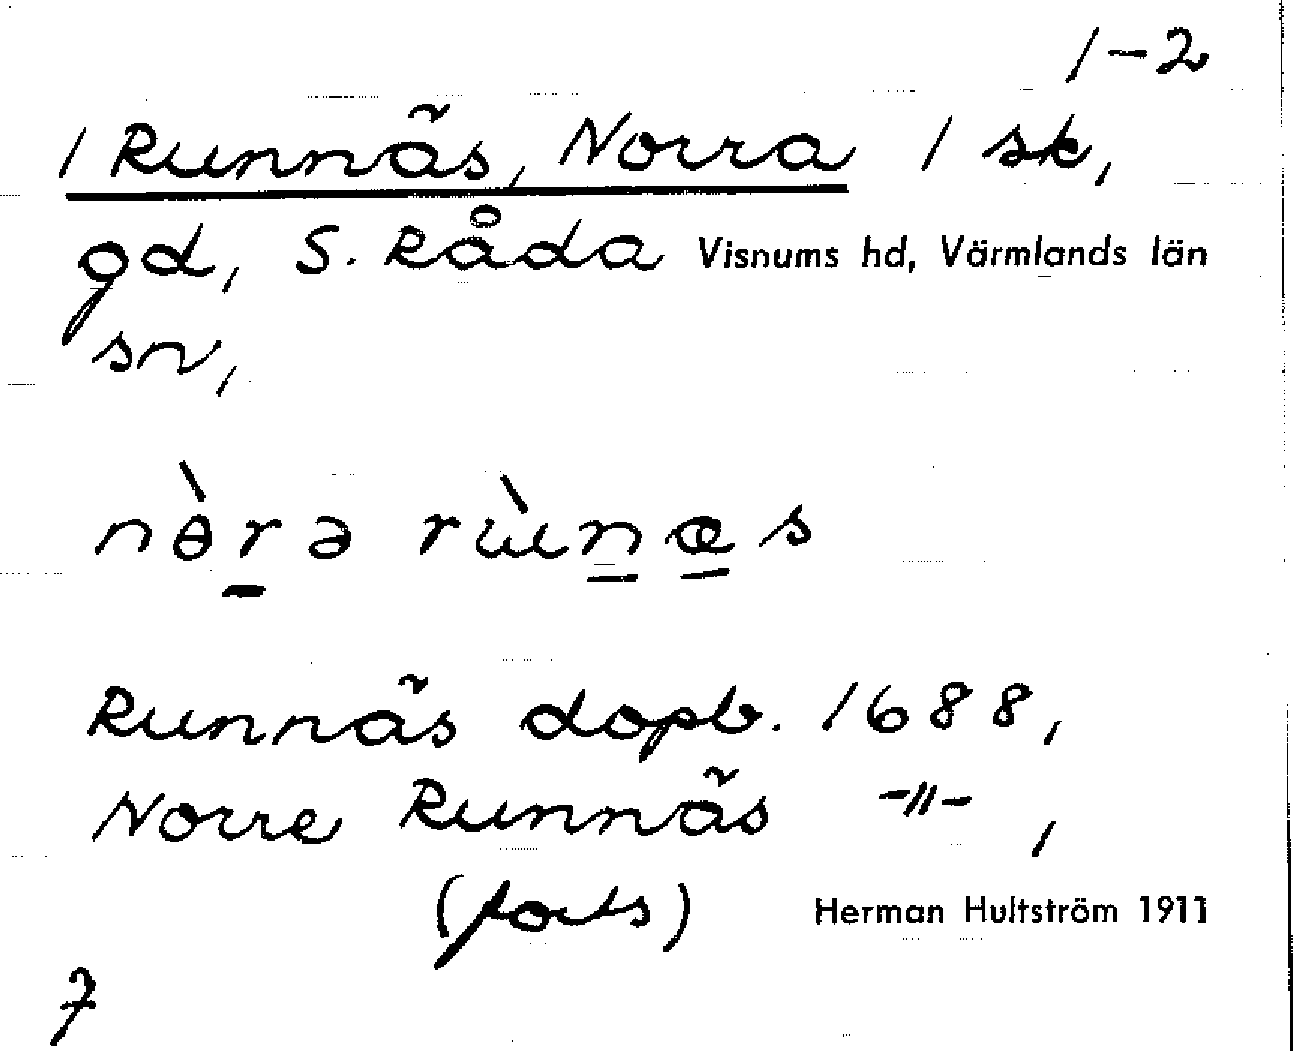 1-2
1 Runnäs, Norra 1 sk,
gd, S. Råda Visnums hd, Värmlands län
sn,
nɵ̀r̲ə rùn̲æ̲s
Runnäs dopb. 1688,
Norre Runnäs -"-,
(forts) Herman Hultström 1911
7